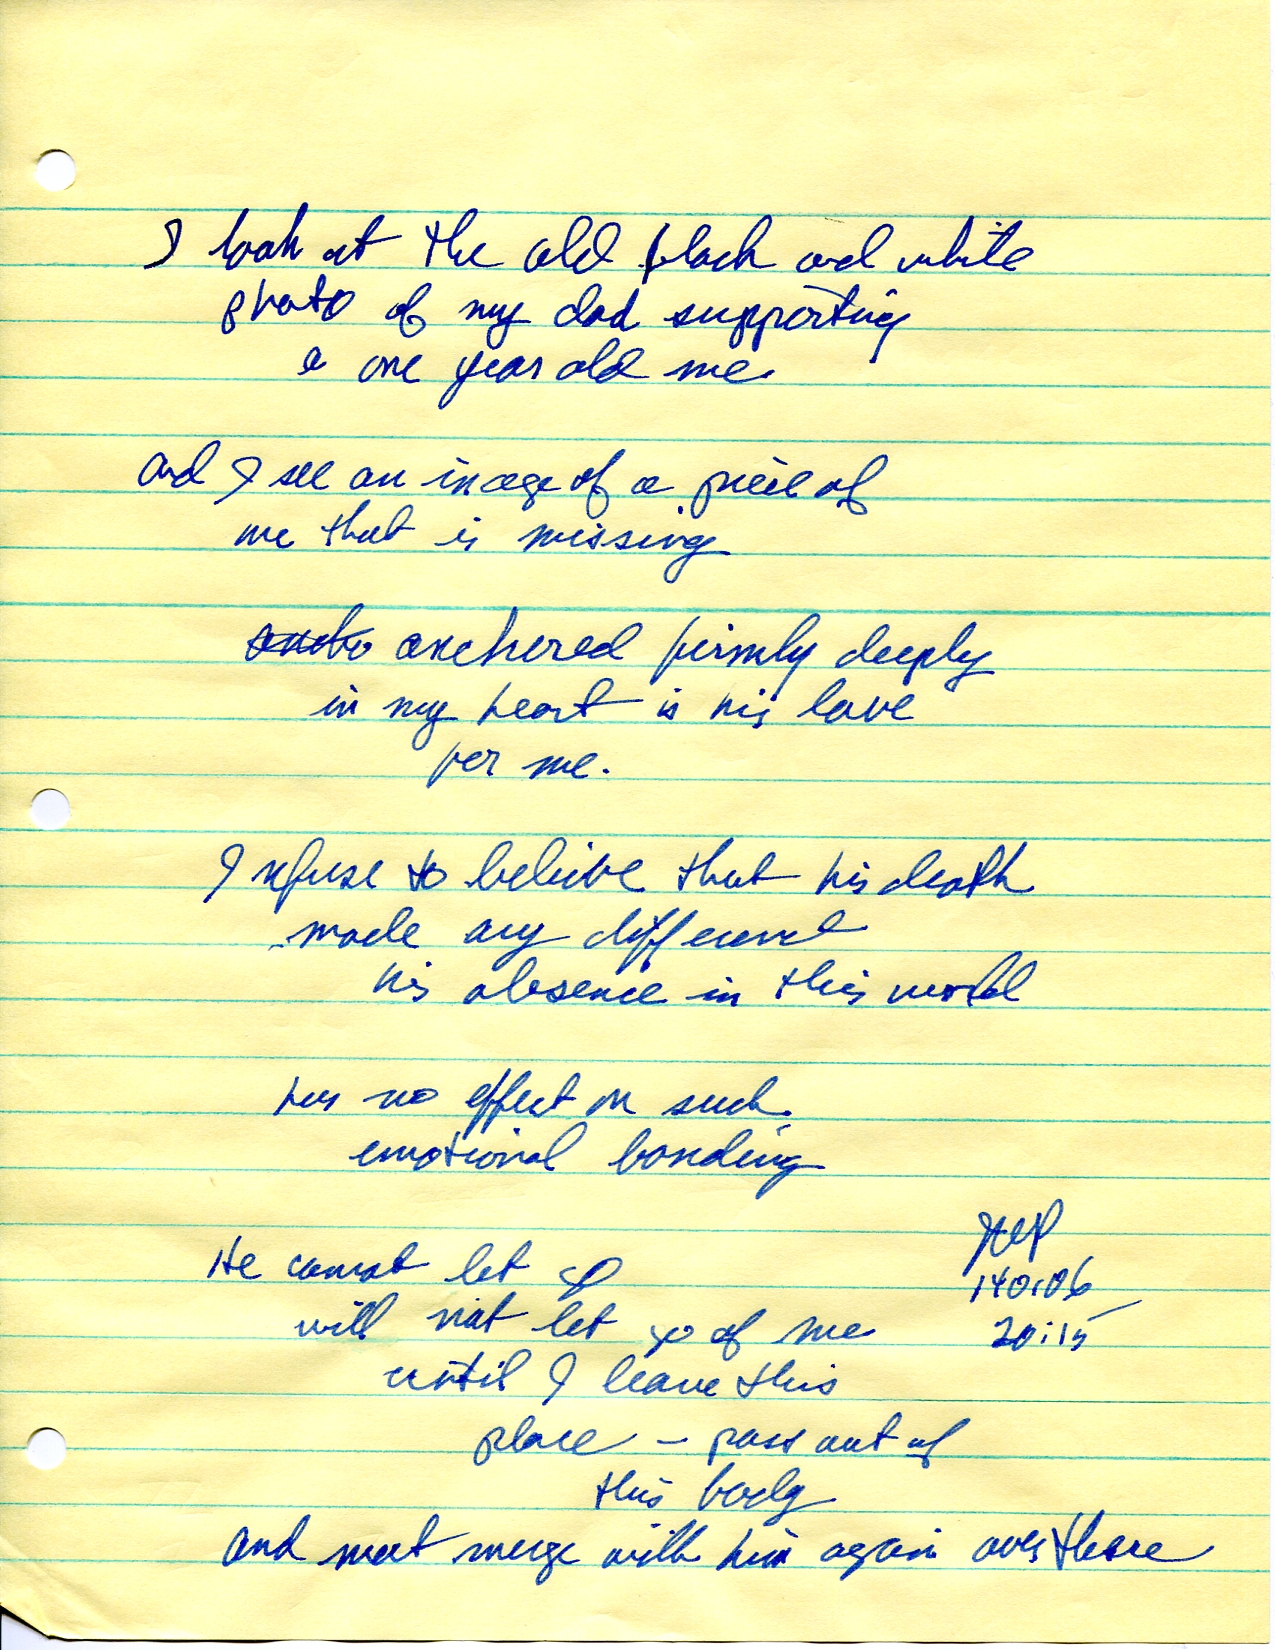 I look at the old black and white
photo of my dad supporting
a one year old me
and I see an image of a piece of
me that is missing
anchored firmly deeply
in my heart is his love
for me.
I refuse to believe that his death
made any difference
his absence in this world
has no effect on such
emotional bonding
He cannot let go
will not let go of me
until I leave this
place – pass out of
this body
and meet merge with him again over there
140106
20:15